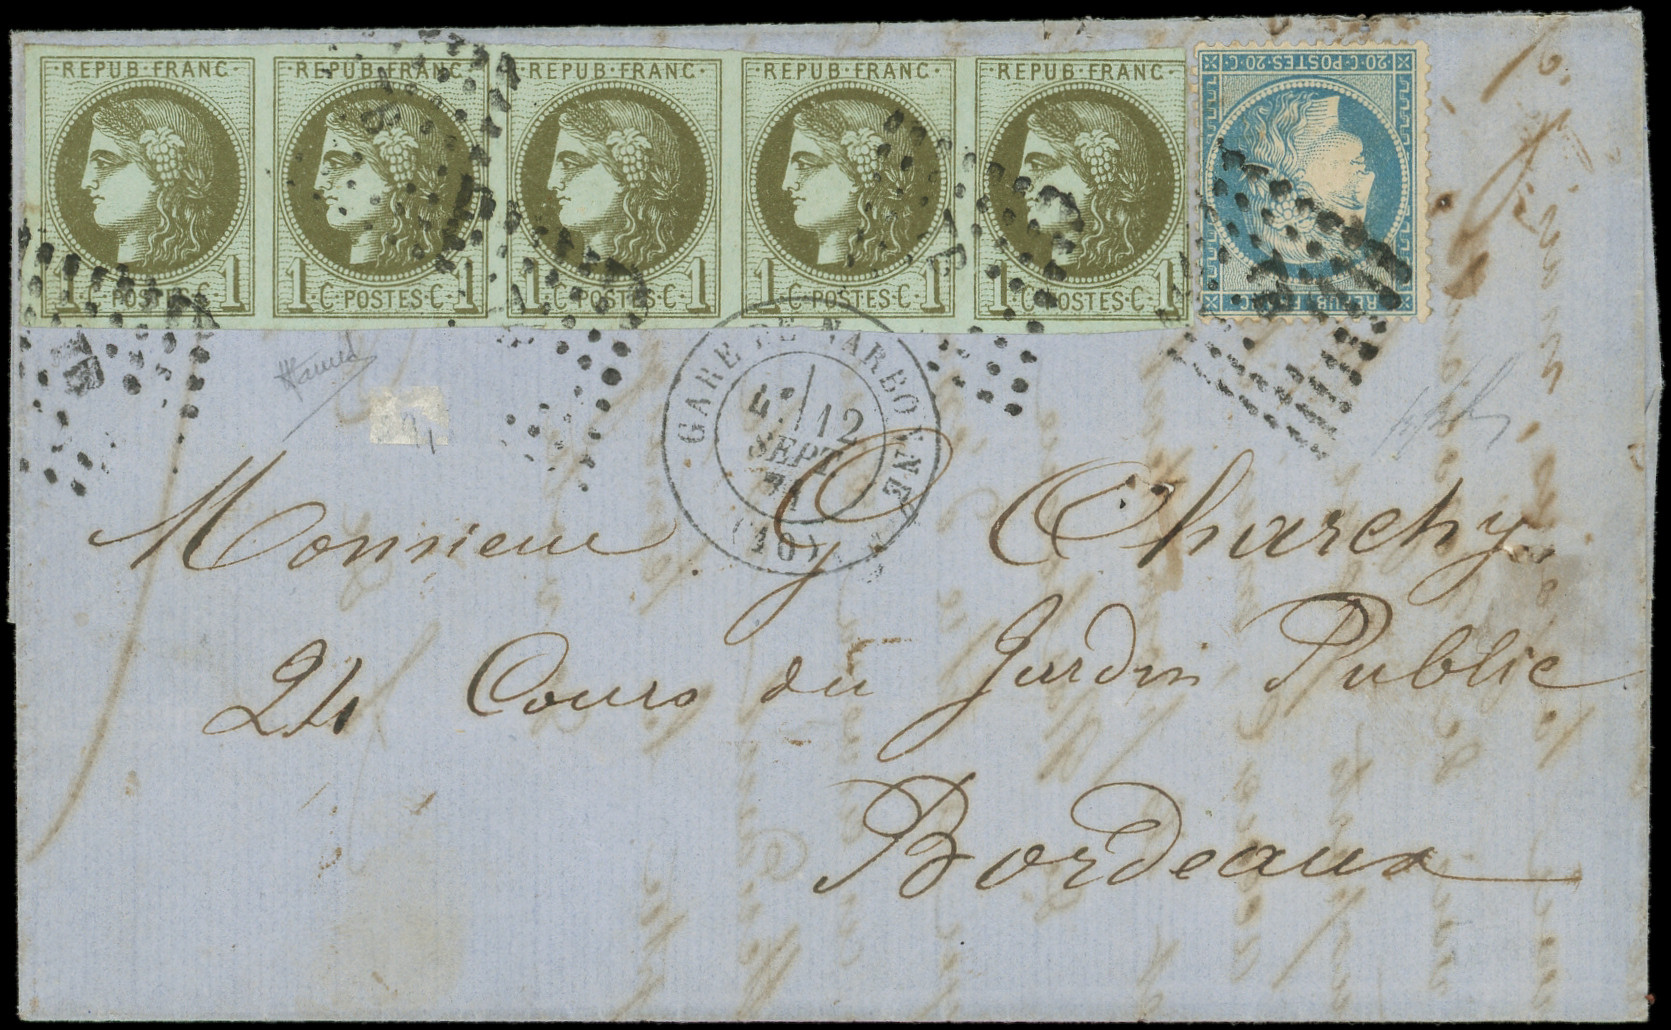 REPUB·FRANC· REPUB·FRANC· REPUB·FRANC· REPUB·FRANC· REPUB·FRANC·
1·C·POSTES·C·1 1·C·POSTES·C·1 1·C·POSTES·C·1 1·C·POSTES·C·1 1·C·POSTES·C·1
20·C·POSTES·20·C
REPUB·F
GARE DE NARBONNE
12
SEPT
71
(10)
Monsieur G Charchy
24 Cours du Jardin Public
Bordeaux